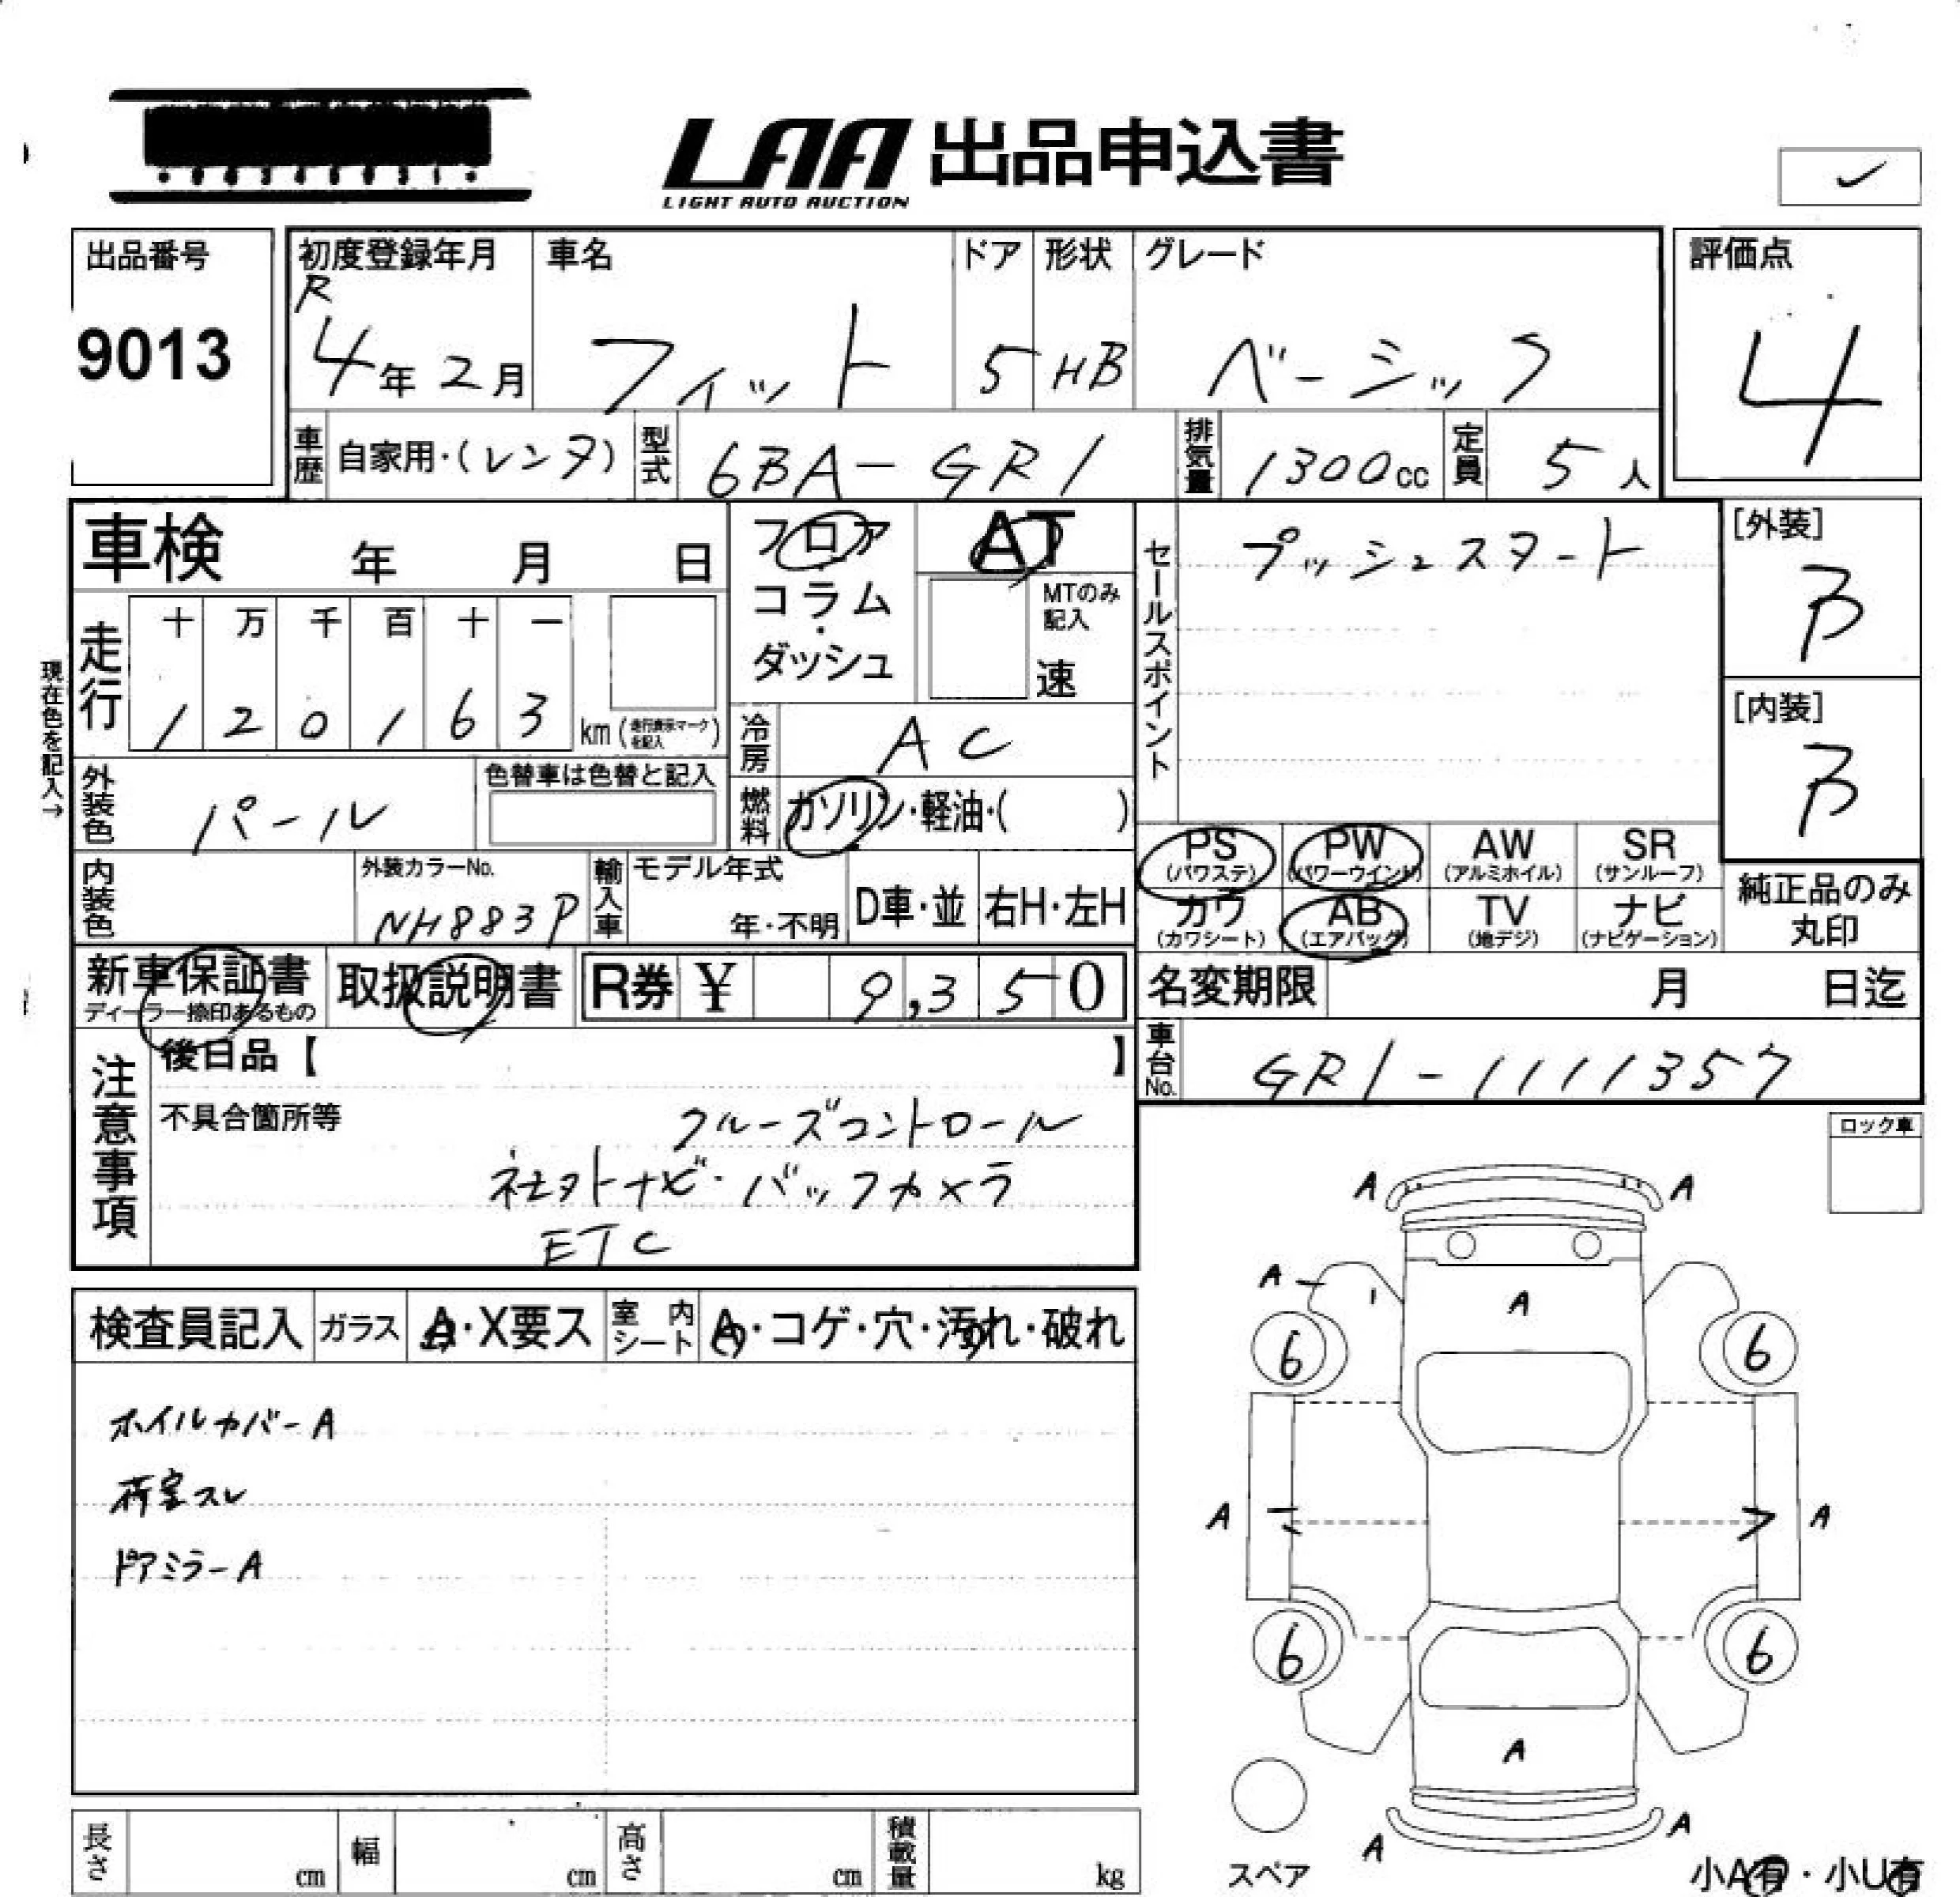 LAA 出品申込書
LIGHT AUTO AUCTION
出品番号
9013
初度登録年月
R
4年2月
車名
フィット
ドア
5
形状
HB
グレード
ベーシック
評価点
4
車歴
自家用・(レンタ)
型式
6BA-GR1
排気量
1300cc
定員
5人
車検 年 月 日
現在色を記入→
走行
十 万 千 百 十 一
1 2 0 1 6 3
km(走行表示マークを記入)
フロア
コラム
・
ダッシュ
AT
MTのみ
記入
速
冷房
AC
燃料
ガソリン・軽油・( )
外装色
パール
色替車は色替と記入
内装色
外装カラーNo.
NH883P
輸入車
モデル年式
年・不明
D車・並
右H・左H
セールスポイント
プッシュスタート
[外装]
B
[内装]
B
PS
(パワステ)
PW
(パワーウインド)
AW
(アルミホイル)
SR
(サンルーフ)
カワ
(カワシート)
AB
(エアバッグ)
TV
(地デジ)
ナビ
(ナビゲーション)
純正品のみ
丸印
新車保証書
ディーラー捺印あるもの
取扱説明書
R券 ¥ 9,350
名変期限 月 日迄
車台No.
GR1-1111357
注意事項
後日品【 】
不具合箇所等
クルーズコントロール
社外ナビ・バックカメラ
ETC
ロック車
検査員記入
ガラス
A・X要ス
室内シート
A・コゲ・穴・汚れ・破れ
ホイルカバーA
荷室スレ
ドアミラーA
A A
A
A
6 6
A A
6 6
A
A A
スペア
小A有・小U有
長さ cm
幅 cm
高さ cm
積載量 kg